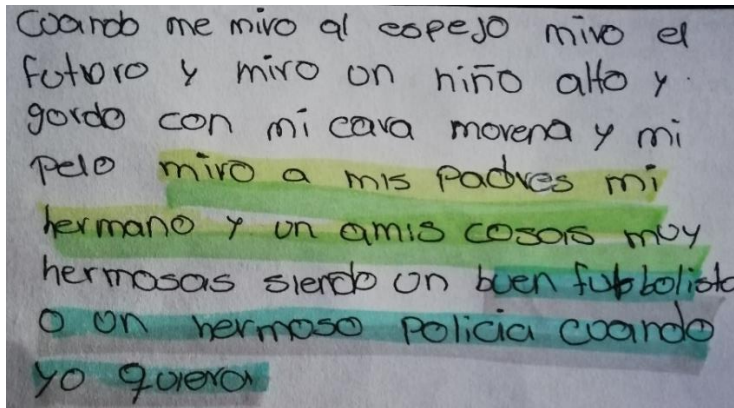 Cuando me miro al espejo miro el
futuro y miro un niño alto y
gordo con mi cara morena y mi
pelo miro a mis padres mi
hermano y un amis cosas muy
hermosas siendo un buen futbolista
o un hermoso policia cuando
yo quiera